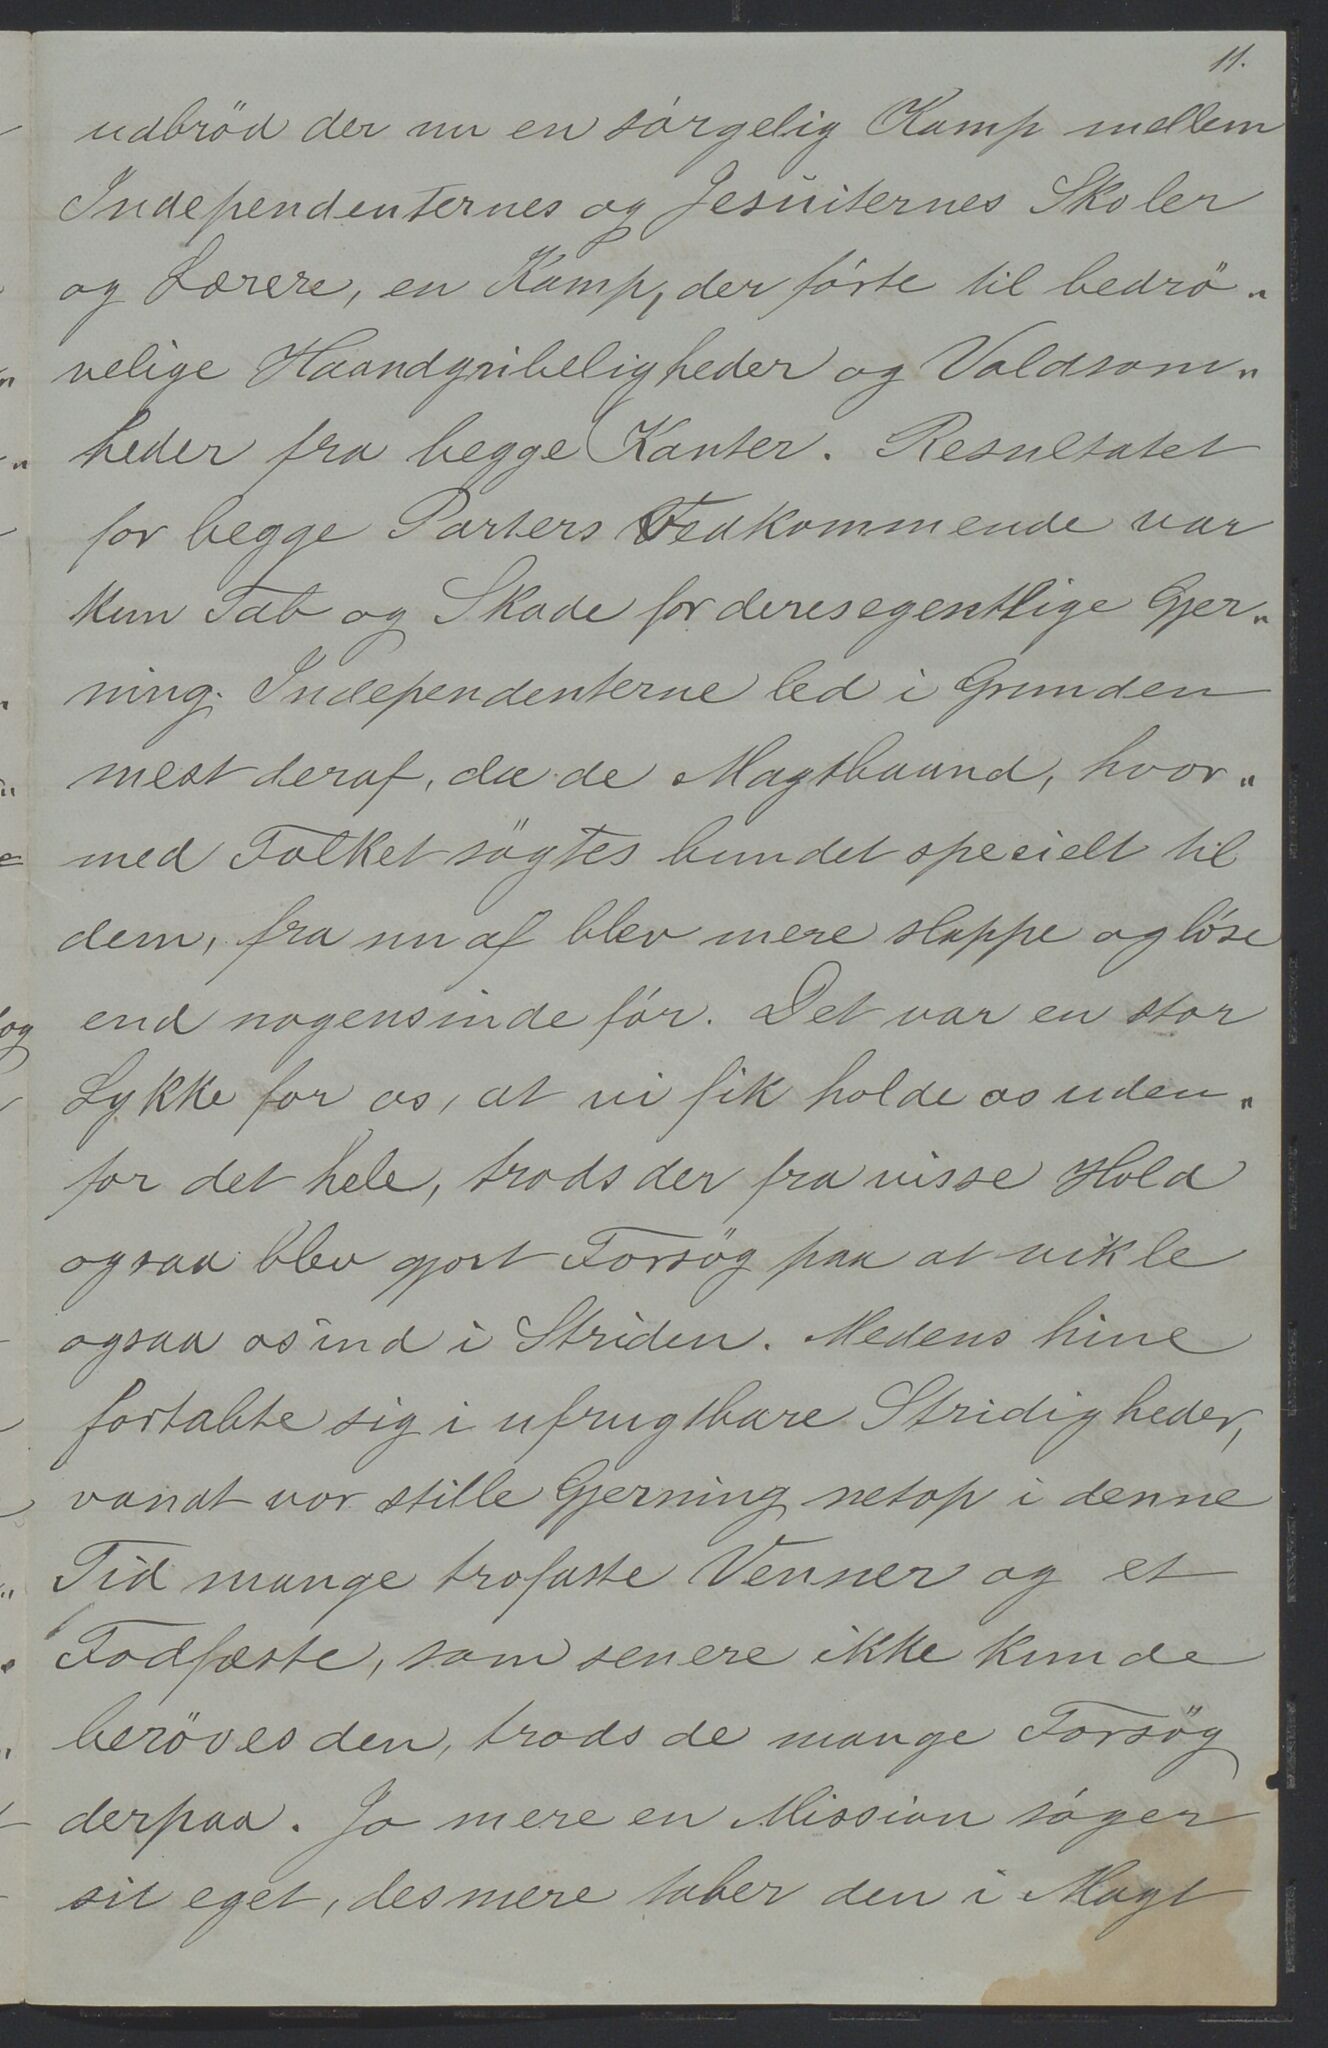 11.
udbröd der nu en sörgelig Kamp mellem
Independenternes og Jesuiternes Skoler
og Lærere, en Kamp, der förte til bedrö„
velige Haandgribeligheder og Voldsom„
heder fra begge Kanter. Resultatet
for begge Parters Vedkommende var
kun Tab og Skade for deres egentlige Gjer„
ning. Independenterne led i Grunden
mest deraf, da de Magtbaand, hvor„
med Folket sögtes bundet specielt til
dem, fra nu af blev mere slappe og löse
end nogensinde för. Det var en stor
Lykke for os, at vi fik holde os uden„
for det hele, trods der fra visse Hold
ogsaa blev gjort Forsög paa at vikle
ogsaa os ind i Striden. Medens hine
fortabte sig i ufrugtbare Stridigheder,
vandt vor stille Gjerning netop i denne
Tid mange trofaste Venner og et
Fodfæste, som senere ikke kunde
beröves den, trods de mange Forsög
derpaa. Jo mere en Mission söger
sit eget, des mere taber den i Magt